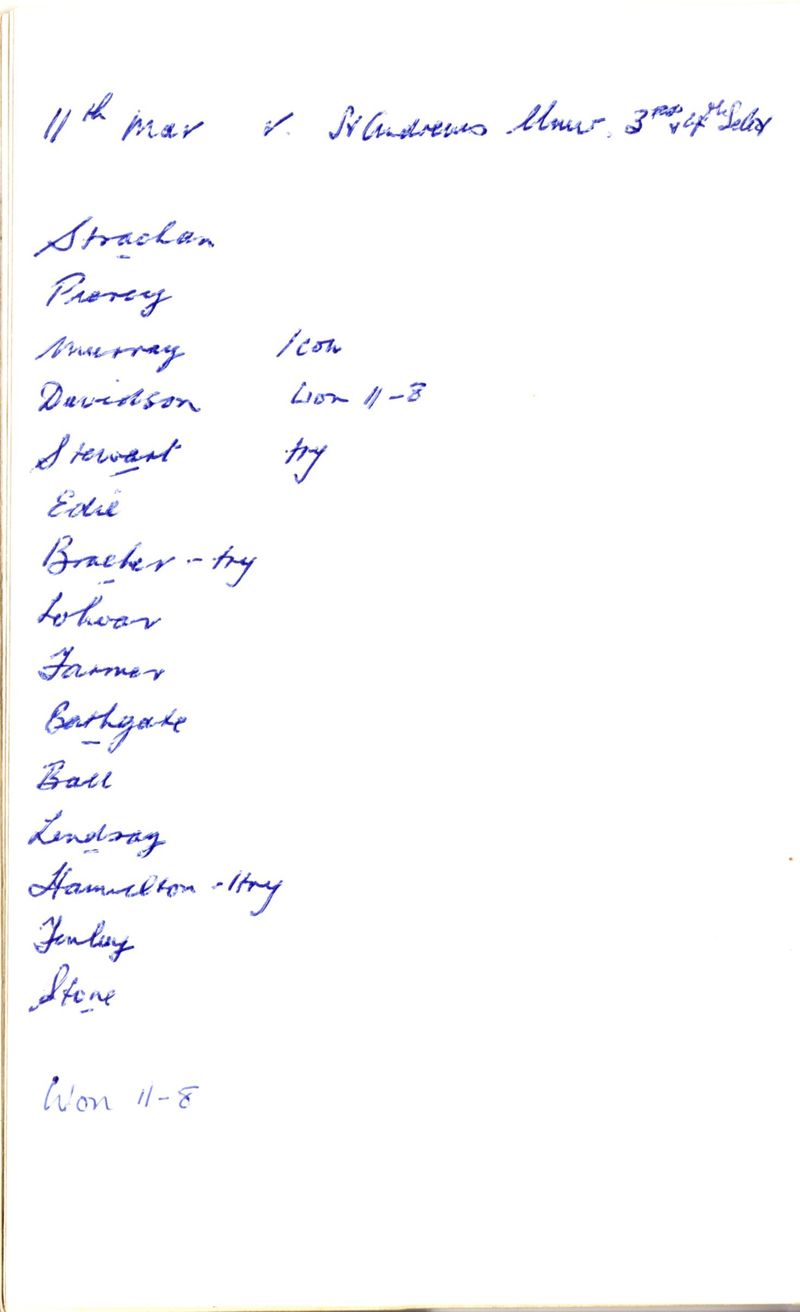 11th Mar v. St Andrews Univ. 3rd & 4th Selex
Strachan
Piercy
Murray 1 con
Davidson Won 11-8
Stewart try
Edie
Bracher - try
Farmer
Bathgate
Ball
Lindsay
Hamilton - 1 try
Finlay
Stone
Won 11-8